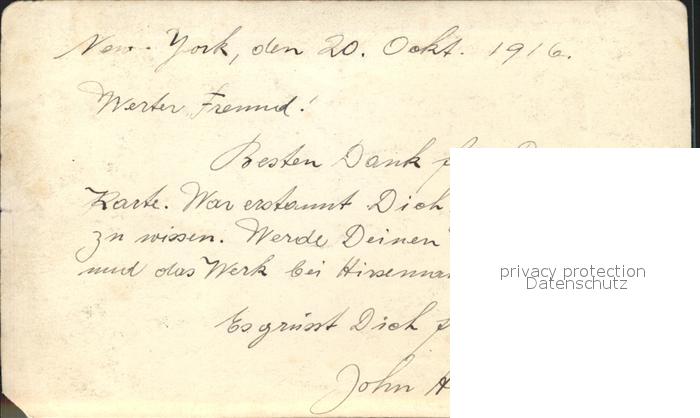 New-York, den 20. Ockt. 1916.
Werter Freund!
Besten Dank
Karte. War erstaunt Dich
zu wissen. Werde Deinen
und das Werk bei
Es grüsst Dich
John
privacy protection
Datenschutz